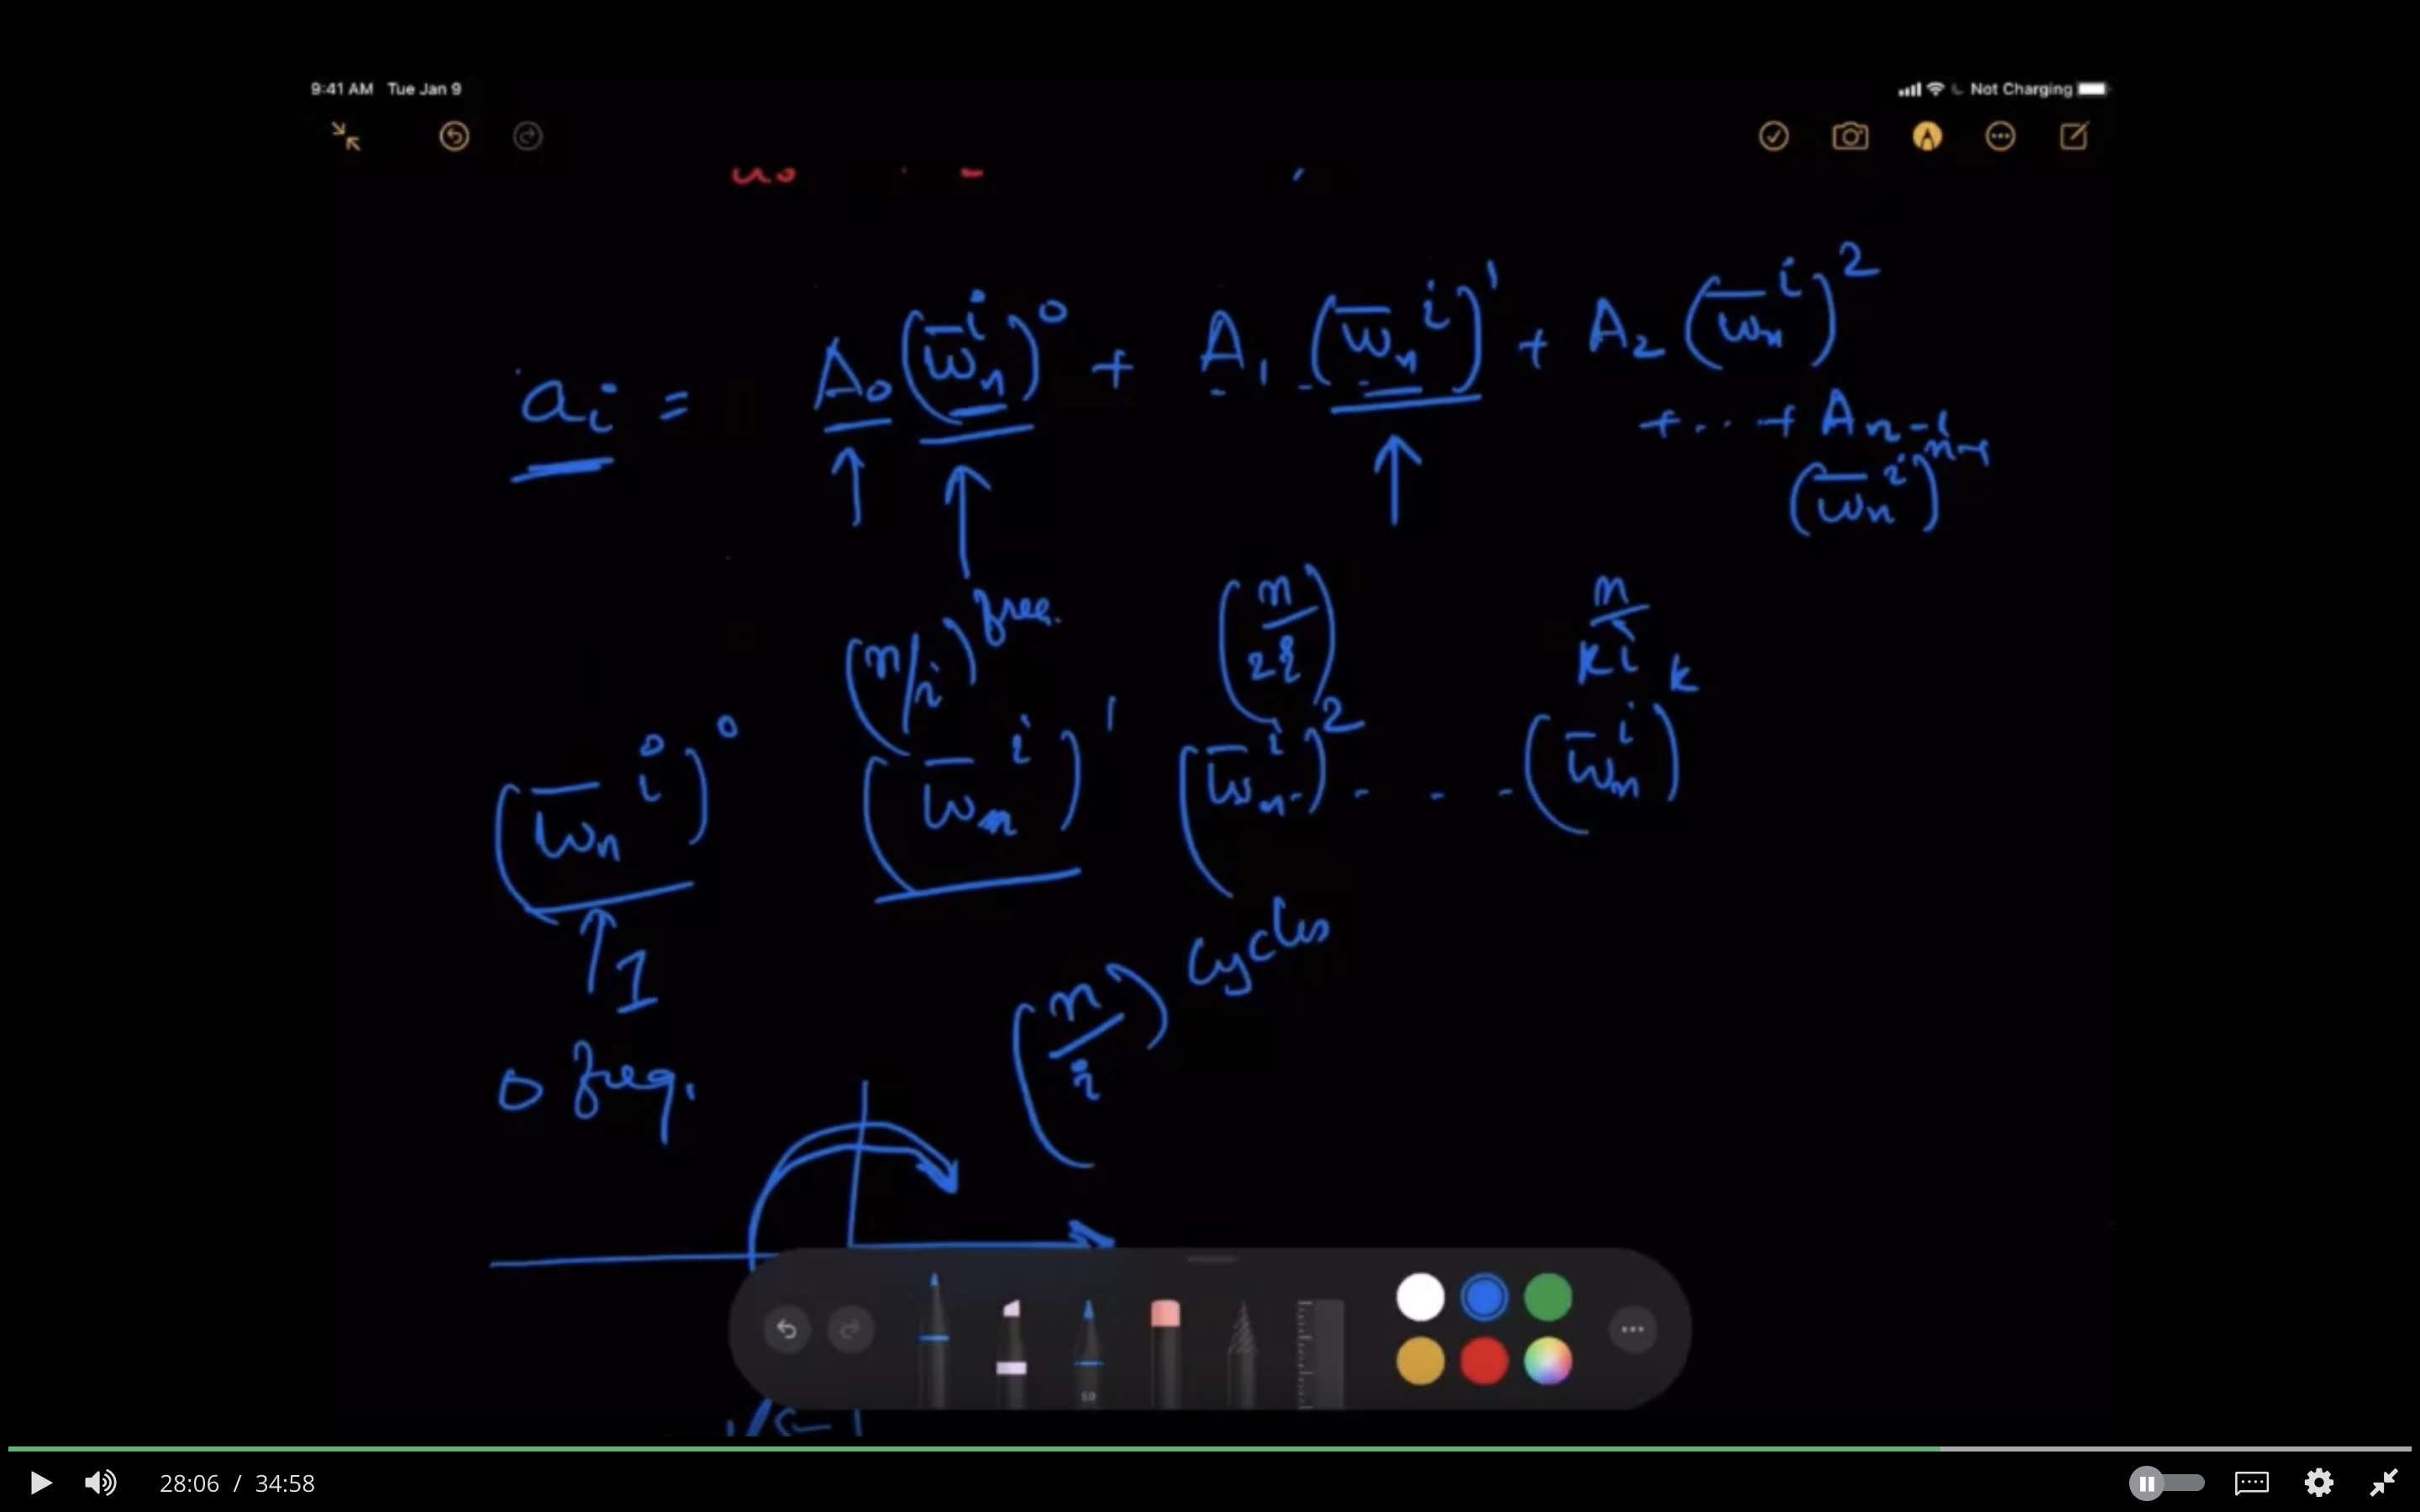 9:41 AM Tue Jan 9
Not Charging
aᵢ = A₀(w̄ₙⁱ)⁰ + A₁(w̄ₙⁱ)¹ + A₂(w̄ₙⁱ)²
+ . . . + Aₙ₋₁
(w̄ₙⁱ)ⁿ⁻¹
(n/i) freq.
(n/2i)
n/ki
(w̄ₙⁱ)⁰ (w̄ₙⁱ)¹ (w̄ₙⁱ)² . . . (w̄ₙⁱ)ᵏ
1
0 freq.
(n/i) cycles
50
28:06 / 34:58